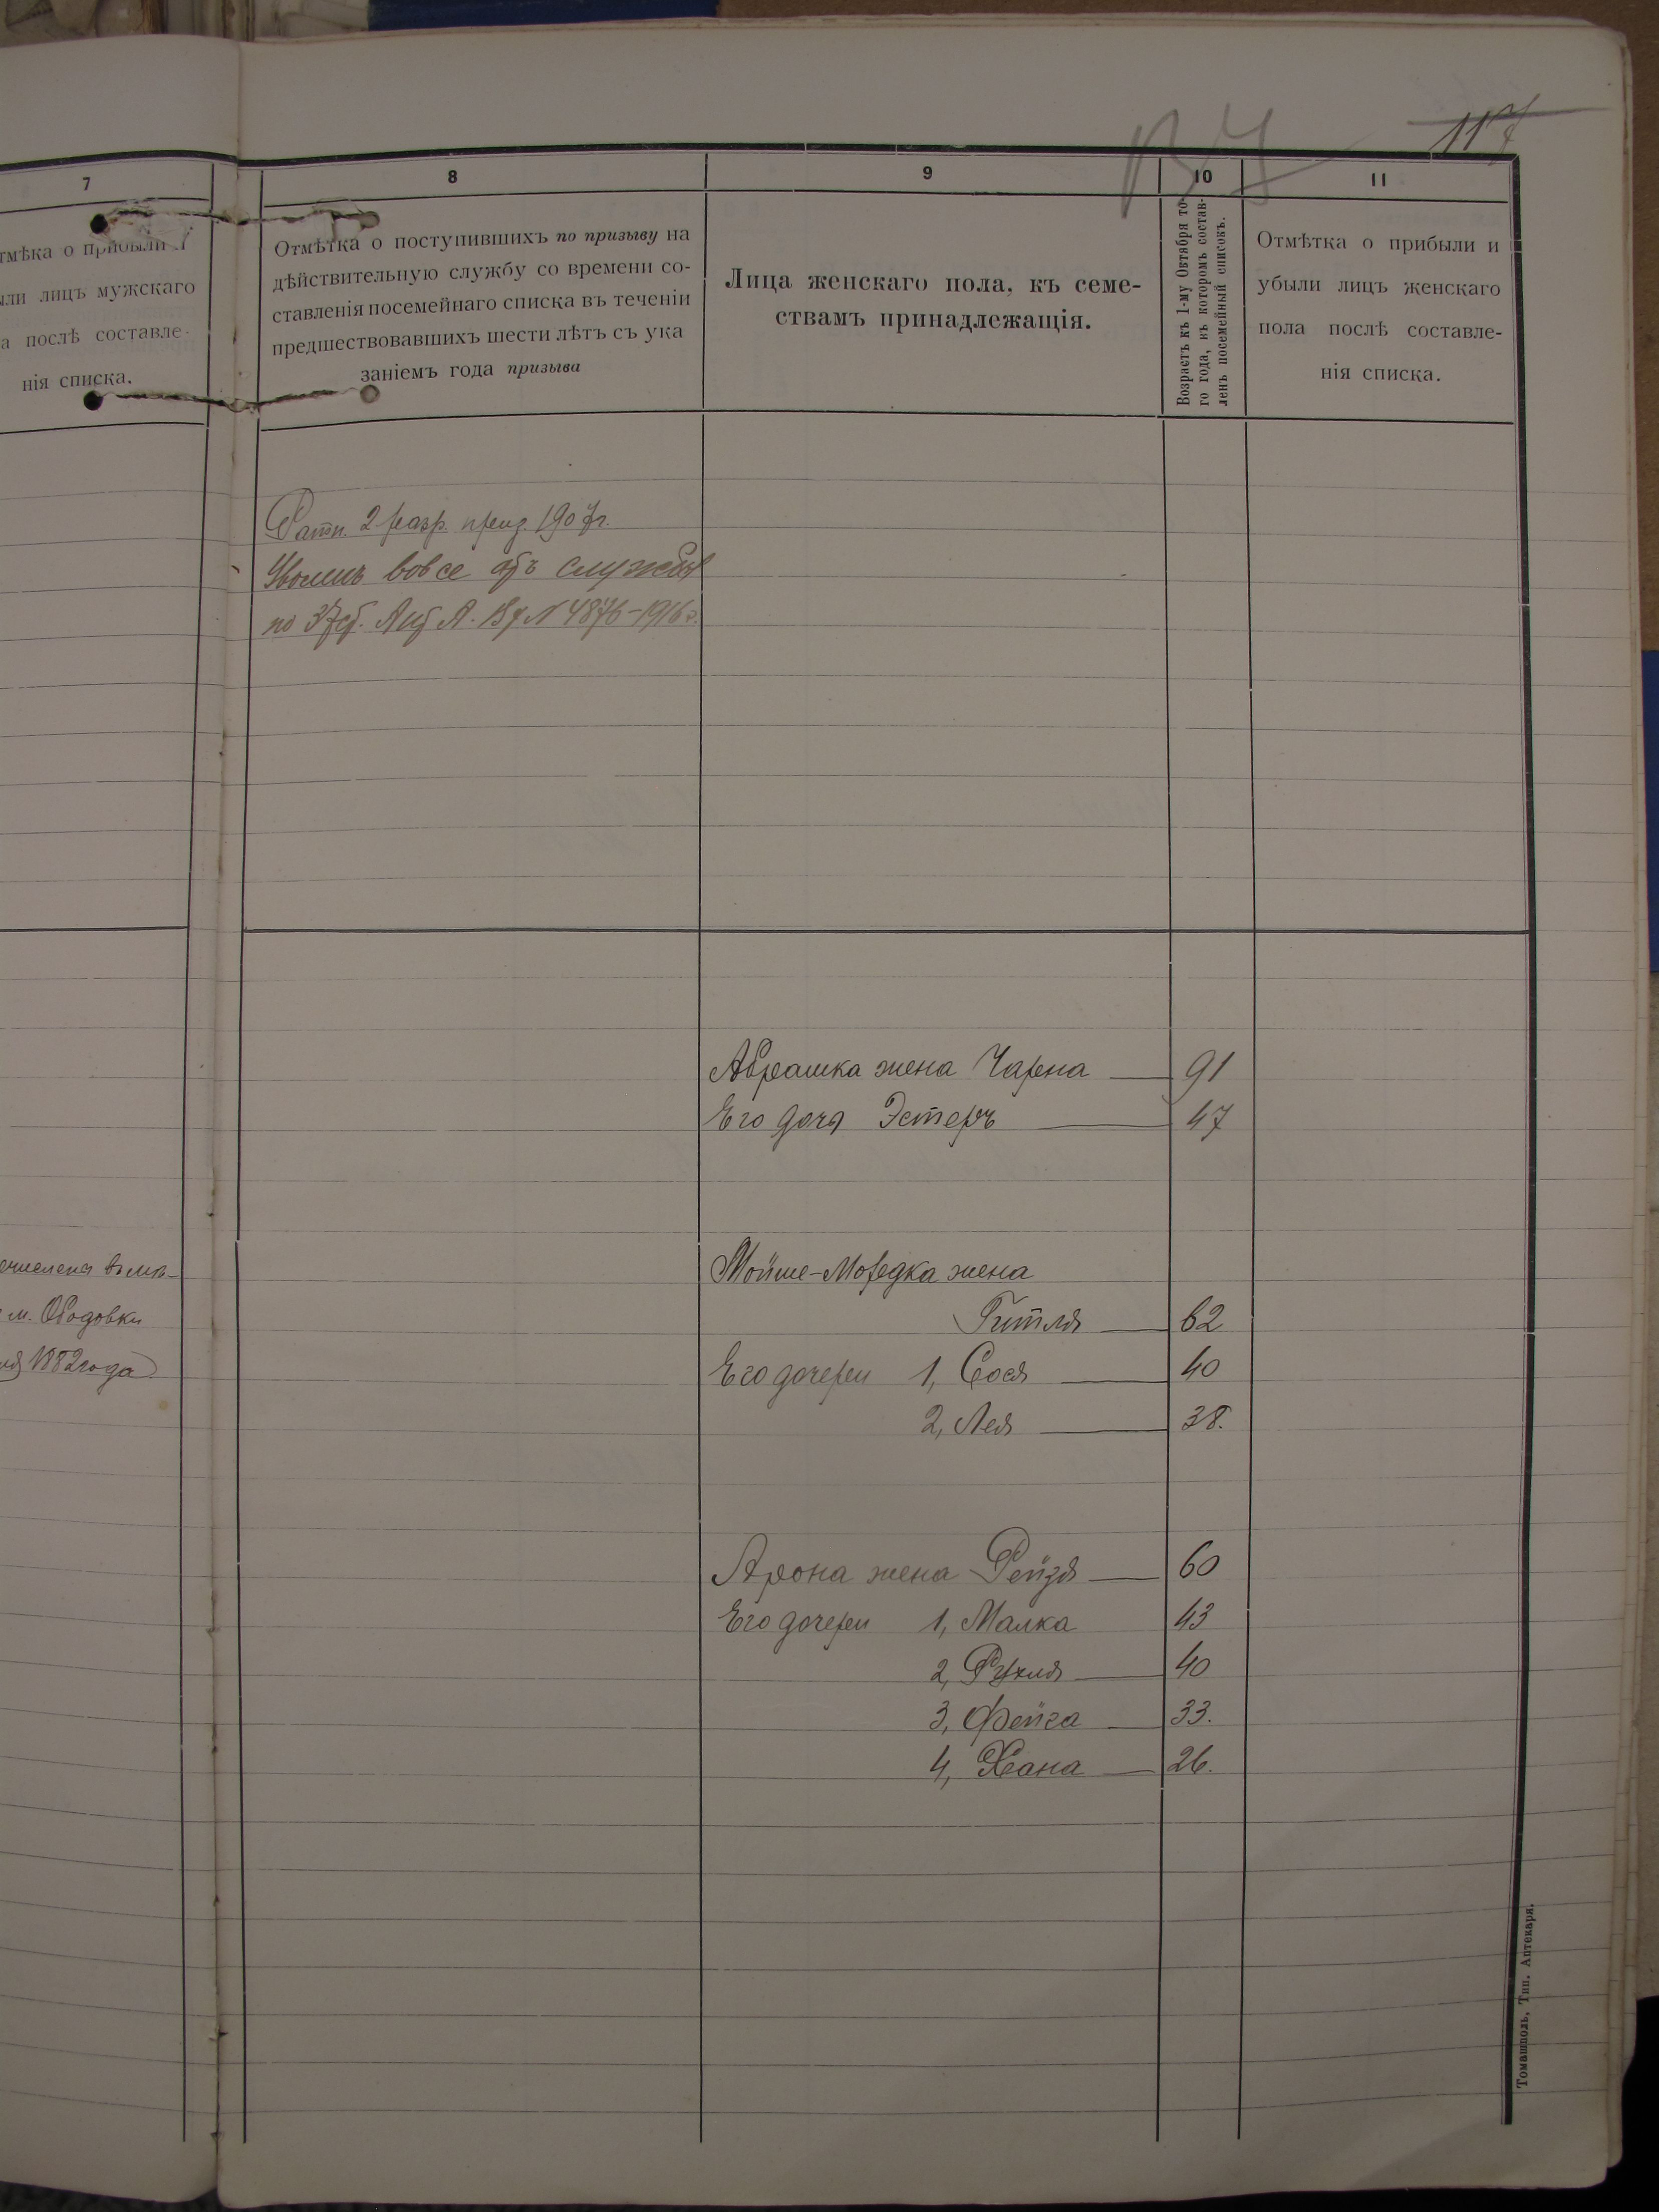 117
7
8
9
10
11
тмѣка о прибыли и
ыли лицъ мужскаго
а послѣ составле-
нія списка.
Отмѣтка о поступившихъ по призыву на
дѣйствительную службу со времени со-
ставленія посемейнаго списка въ теченіи
предшествовавшихъ шести лѣтъ съ ука
заніемъ года призыва
Лица женскаго пола, къ семе-
ствамъ принадлежащія.
Возрастъ къ 1-му Октября то-
го года, въ которомъ состав-
ленъ посемейный списокъ.
Отмѣтка о прибыли и
убыли лицъ женскаго
пола послѣ составле-
нія списка.
Ратн. 2 разр. 1907г.
вовсе отъ службы
по 1916г.
Абрашка жена Чарна 91
Его дочь Эстеръ 47
Мойше-Мордка жена
м. Ободовки
Гитля 62
1882 года
Его дочери 1, Сося 40
2, Лея 38.
Арона жена Рейзя 60
Его дочери 1, Малка 43
2, Рухля 40
3, Фейга 33.
4, Хана 26.
Томашполь, Тип. Аптекаря.